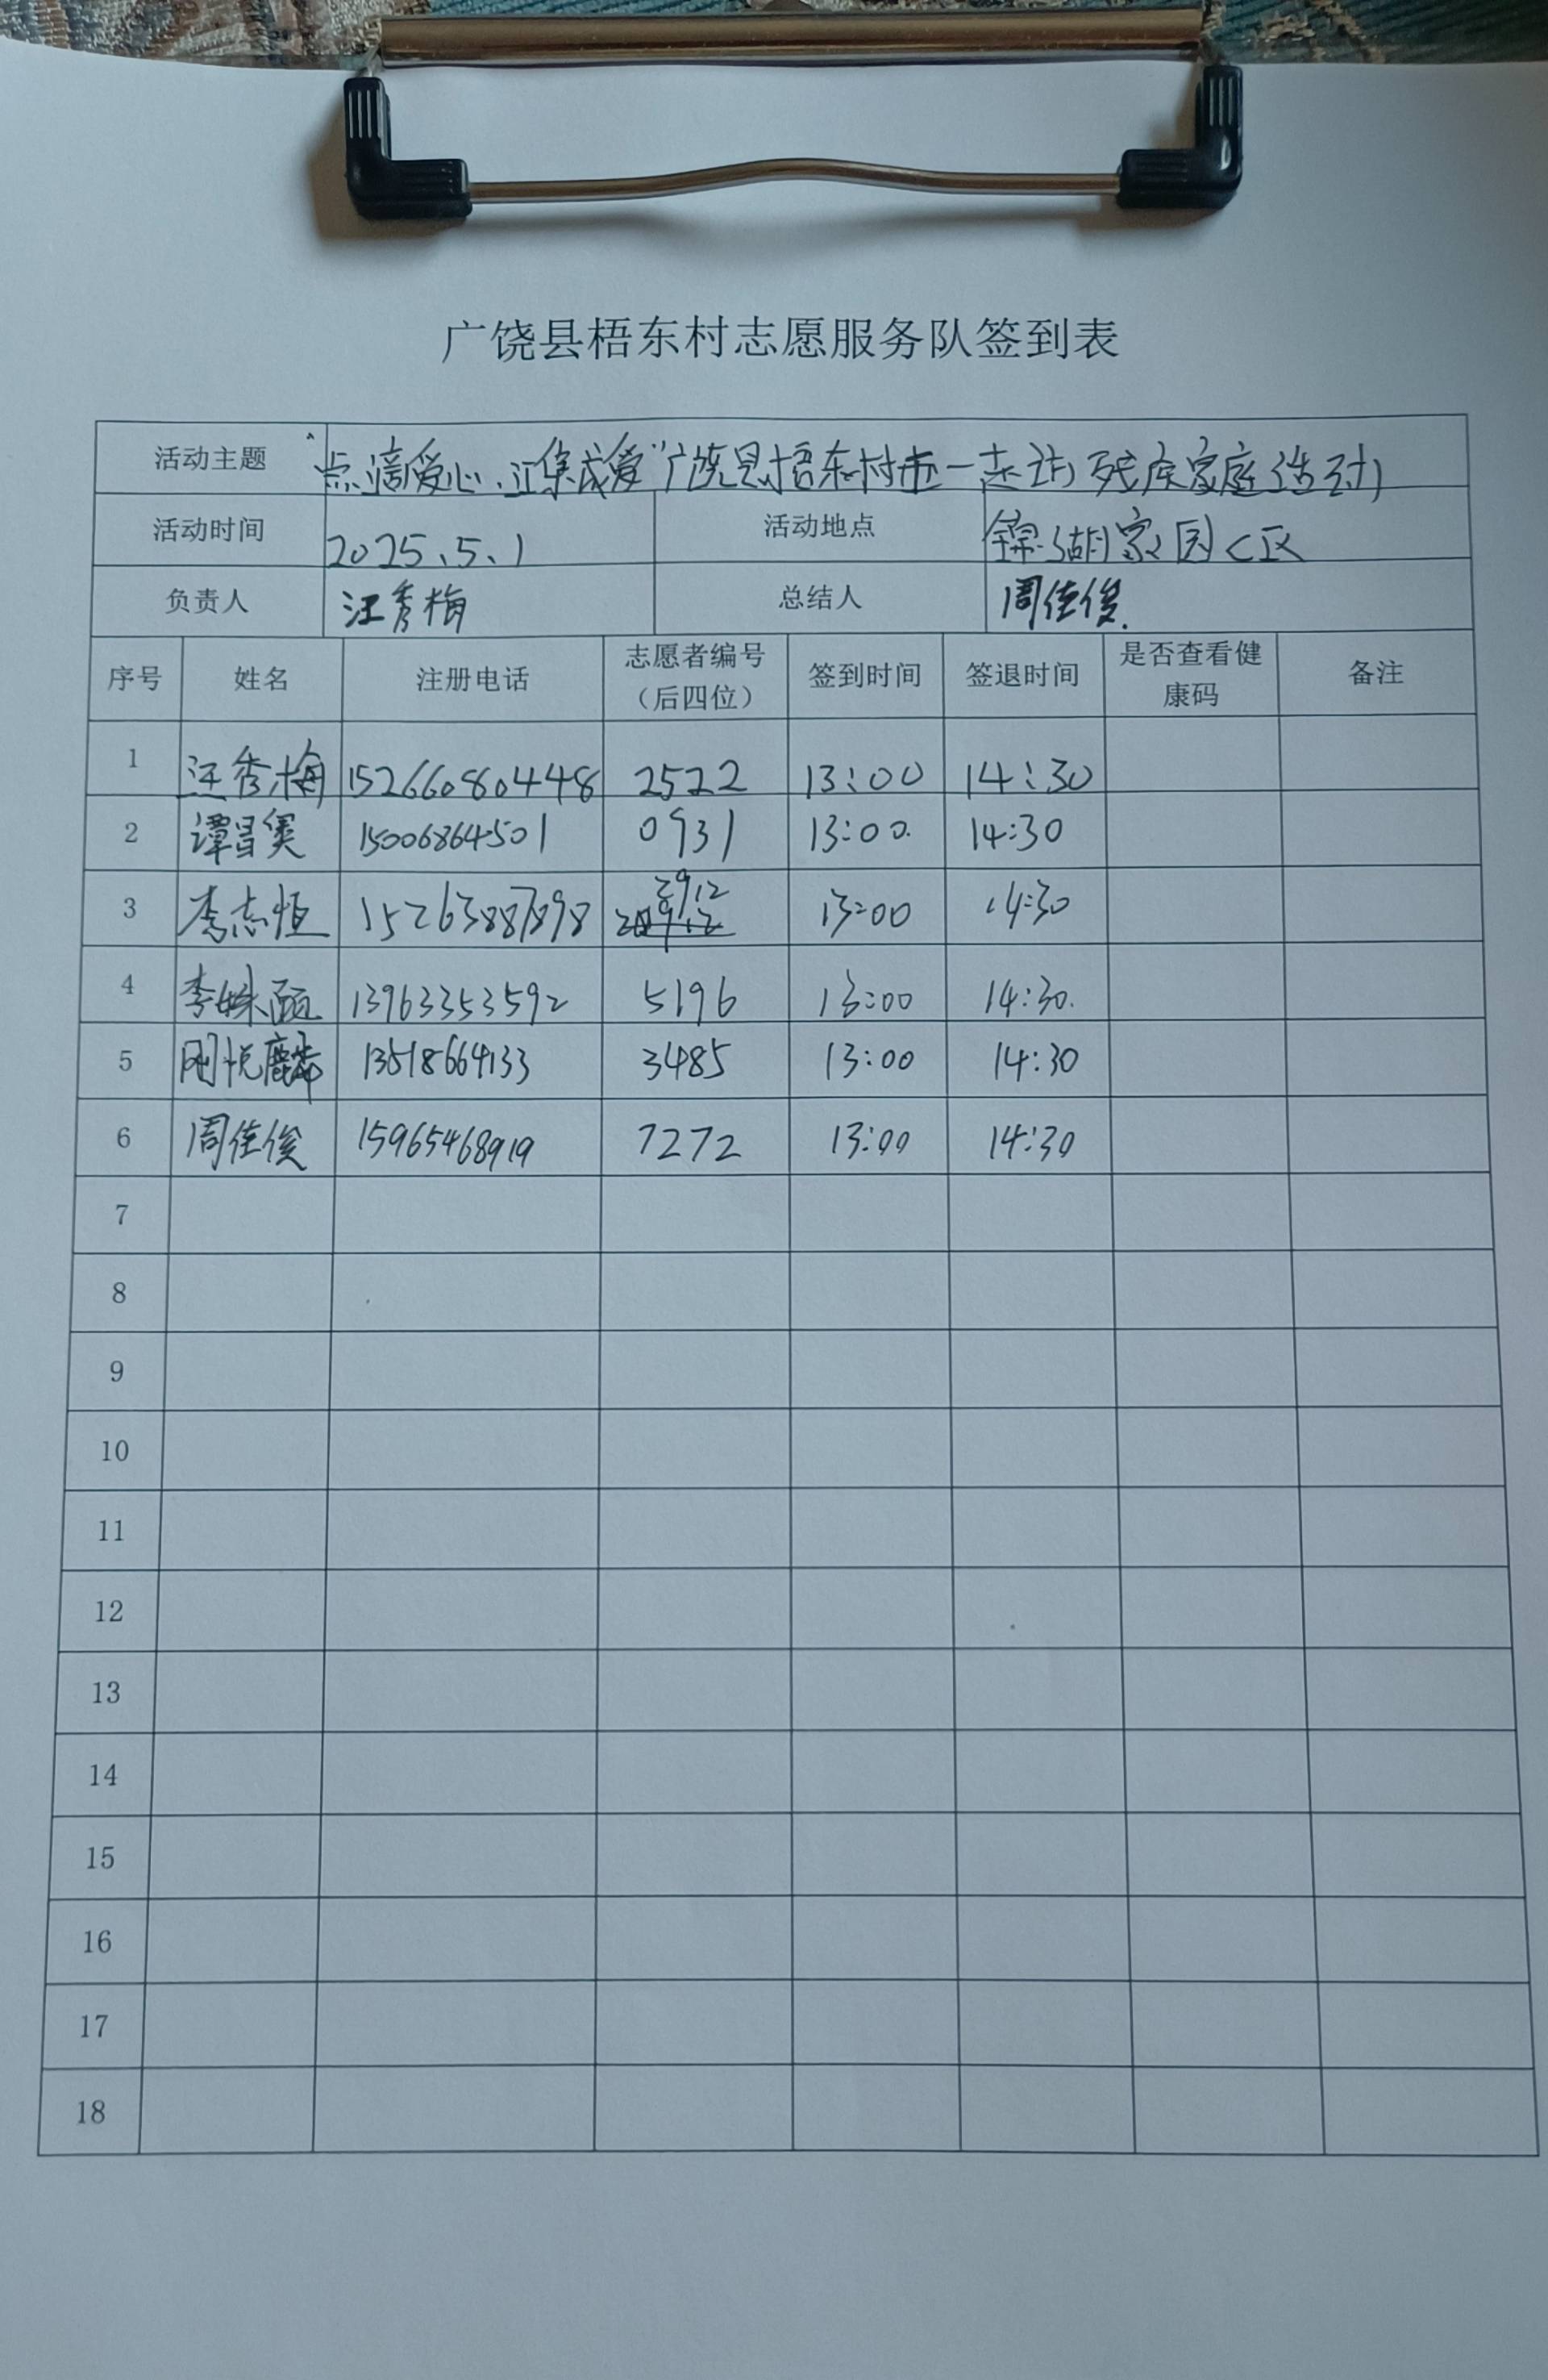 广饶县梧东村志愿服务队签到表
活动主题 "点滴爱心,汇集成爱"广饶县梧东村五一走访残疾家庭活动
活动时间 2025、5、1 活动地点 锦湖家园C区
负责人 汪秀梅 总结人 周佳俊
序号 姓名 注册电话 志愿者编号(后四位) 签到时间 签退时间 是否查看健康码 备注
1 汪秀梅 15266080448 2522 13:00 14:30
2 谭昌 15006864501 0931 13:00 14:30
3 李志恒 15263887898 3912 13:00 14:30
4 李姝 13963353592 5196 13:00 14:30
5 刚悦麟 13518664133 3485 13:00 14:30
6 周佳俊 15965468919 7272 13:00 14:30
7
8
9
10
11
12
13
14
15
16
17
18